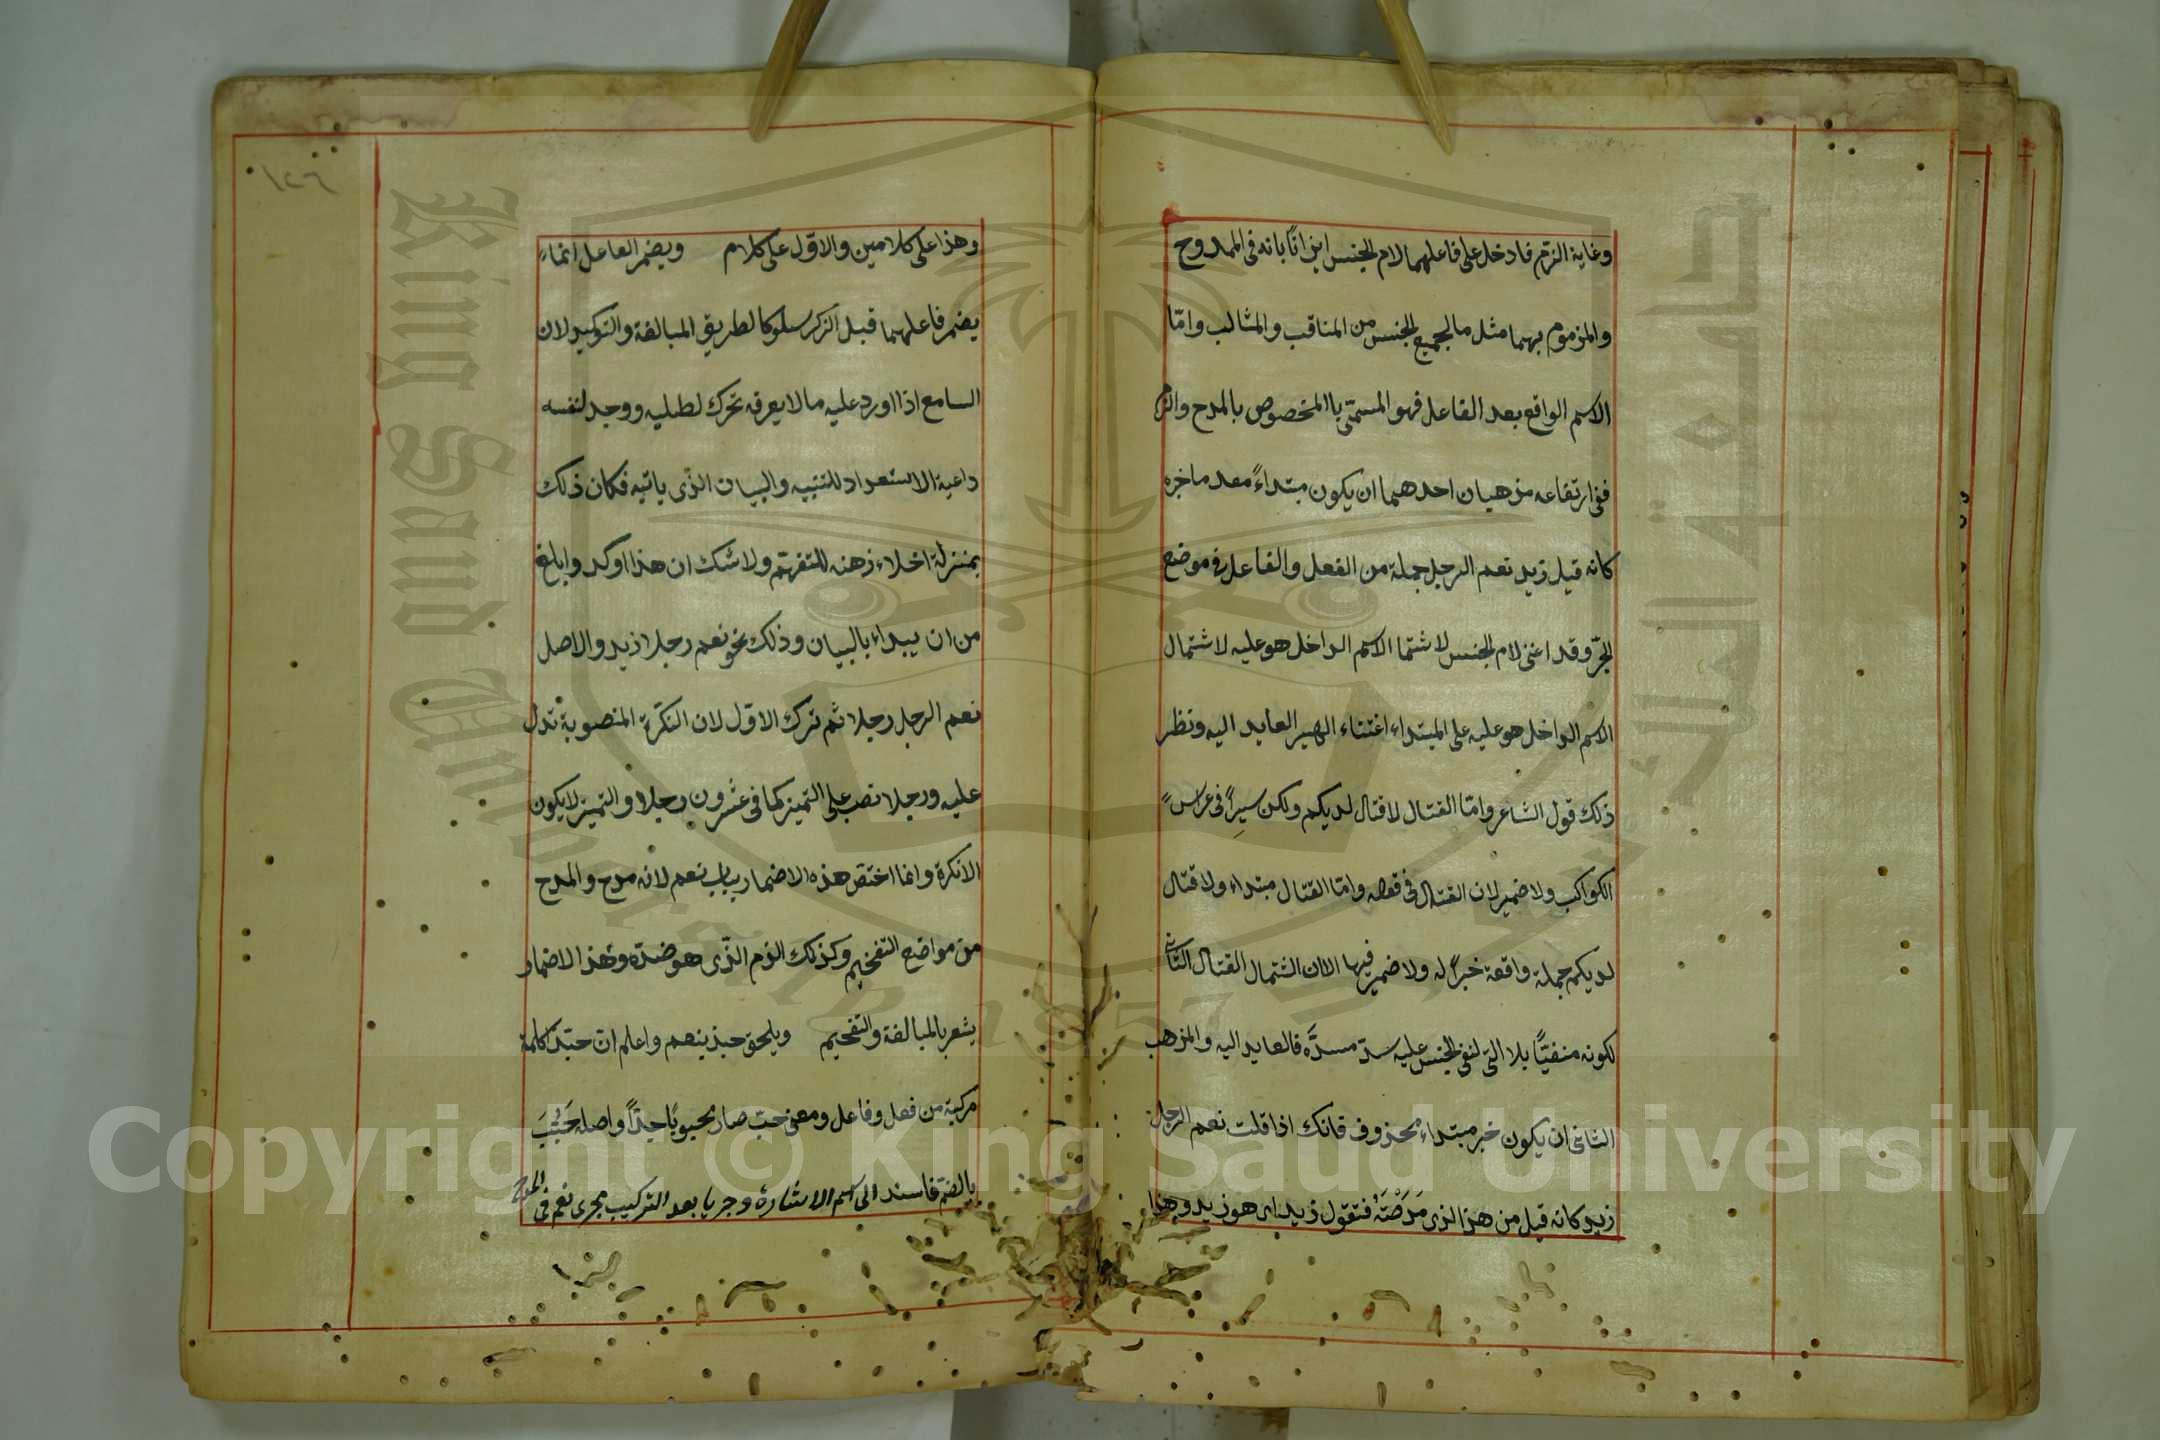 وغاية الذم فادخل على فاعلهما لام الجنس ايذانًا بانه فى الممدوح
والمذموم بهما مثل ما لجميع الجنس من المناقب والمثالب وامّا
الاسم الواقع بعد الفاعل فهو المسمّى باالمخصوص بالمدح والذم
ففى ارتفاعه مذهبان احدهما ان يكون مبتداءً معد ماخبره
كانه قيل زيد نعم الرجل جملة من الفعل والفاعل فى موضع
الخبر وقد اغنى لام الجنس لاشتما الاسم الداخل هو عليه لاشتمال
الاسم الداخل هو عليه على المبتداء اغتناء الهير العايد اليه ونظر
ذلك قول الشاعر وامّا القتال لا قتال لديكم ولكن سيرًا فى عراس
الكواكب ولا ضمير لان القتال فى قعه وامّا القتال مبتداء ولا قتال
لديكم جملة واقعة خبرًا له ولا ضمير فيها الاان اشتمال القتال الثانى
لكونه منفيًّا بلا التى لنفى الجنس عليه سدّ مسدَّه فالعايد اليه والمذهب
الثانى ان يكون خبر مبتداء محذوف فانك اذا قلت نعم الرجل
زيد كانه قيل من هذا الذى مَدَحْتَهُ فتقول زيد اى هو زيد وهذا
١٢٦
وهذا على كلامين والاوّل على كلام ويضمر الفاعل انماء
يضمر فاعلهما قبل الذكر سلوكا لطريق المبالغة والتوكيد لان
السامع اذا اورد عليه ما لا يعرفه تحرك لطلبه ووجد لنفسه
داعية الاستعداد للتنبيه والبيان الذى ياتيه فكان ذلك
بمنزلة اخلاء ذهنه للتفهّم ولا شك ان هذا اوكد وابلغ
من ان يبداء بالبيان وذلك نحو نعم رجلا زيد والاصل
نعم الرجل رجلا ثم ترك الاوّل لان النكرة المنصوبة تدل
عليه ورجلا نصب على التميز كما فى عشرون رجلا والتميز لايكون
الانكرة وانما اختص هذه الاضمار بباب نعم لانه مدح والمدح
من مواضع التفخيم وكذلك الذم الذّى هو ضدّه وهذا الاضمار
يشعر بالمبالغة والتفخيم ويلحق حبذ بنعم واعلم انّ حبّذا كلمة
مركبة من فعل وفاعل ومعنى حبّ صار محبوبًا جدًّا واصله حَبُبَ
بالضم فاسند الى اسم الاشارة وجريا بعد التركيب مجرى نعم فى المدح
King Saud University
1957
جامعة الملك سعود
Copyright © King Saud University